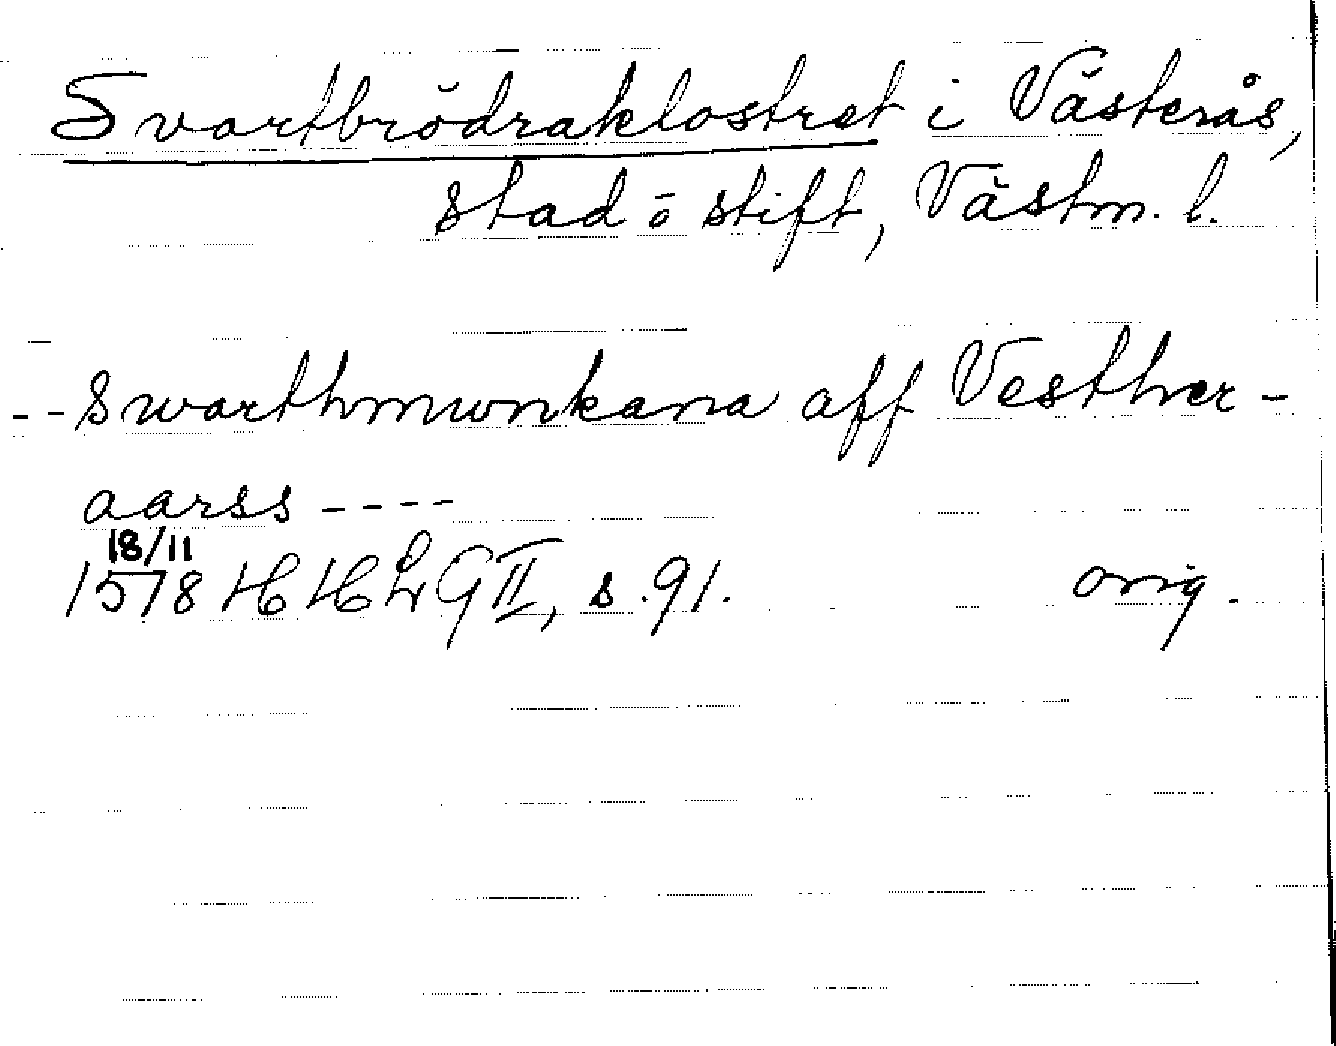 Svartbrödraklostret i Västerås,
stad o stift, Västm. l.
-- swarthmwnkana aff Vesther-
aarss ----
18/11
1578 HHLG II, s. 91. orig.